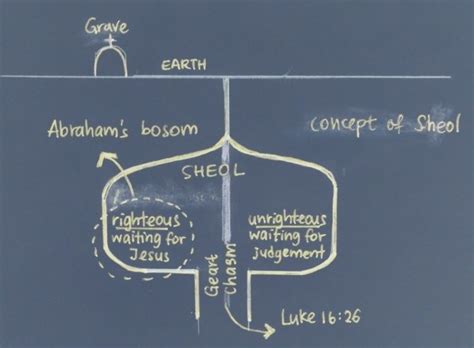 Grave
EARTH
Abraham's bosom
concept of Sheol
SHEOL
righteous
waiting for
Jesus
unrighteous
waiting for
judgement
Geart
Chasm
Luke 16:26